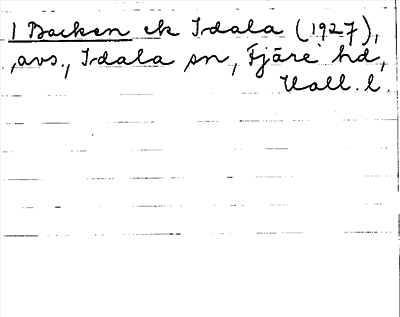 1 Backen ek Idala (1927),
,avs., Idala sn, Fjäre hd,
Hall. l.